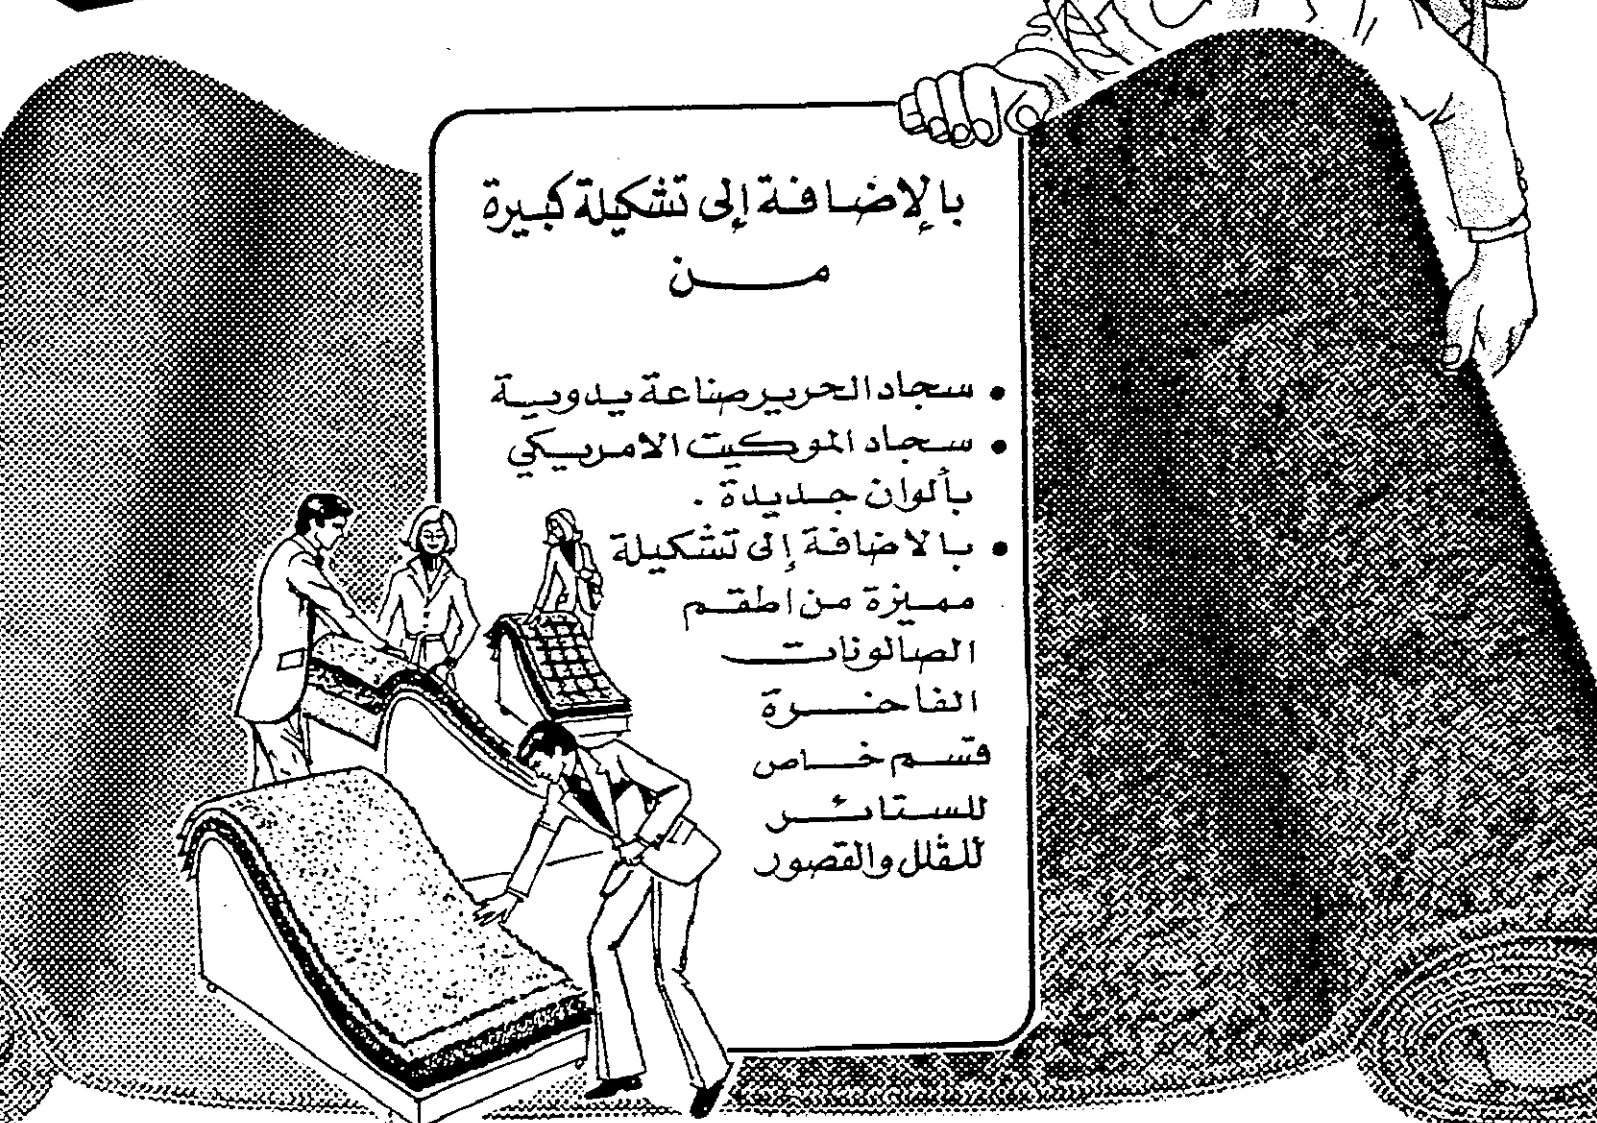 بالإضافة إلى تشكيلة كبيرة
من
• سجاد الحرير صناعة يدوية
• سجاد الموكيت الامريكي
بألوان جديدة .
• بالاضافة إلى تشكيلة
مميزة من اطقم
الصالونات
الفاخرة
قسم خاص
للستائر
للڤلل والقصور